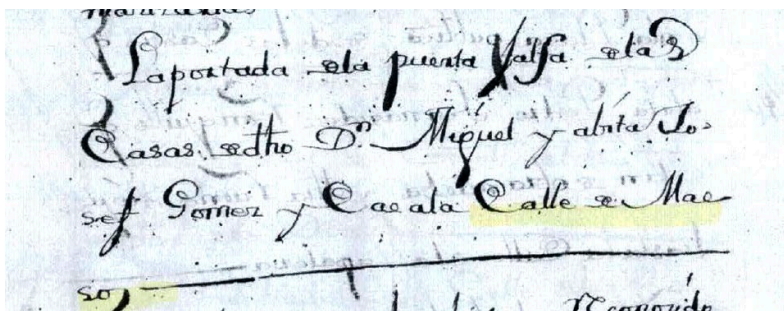 La portada dela puerta falsa delas
Casas dedho Dn. Miguel y abita Jo-
sef Gomez y Cae ala Calle de Mae
so